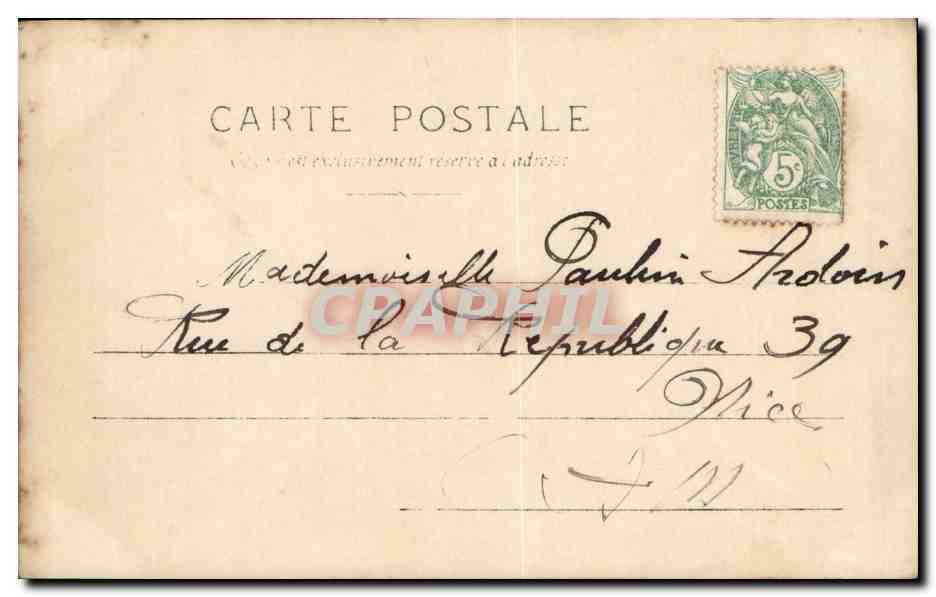 CARTE POSTALE
est exclusivement réservé à l'adresse
5c
POSTES
Mademoiselle Paulin Ardoin
CRAPHIL
Rue de la République 39
Nice
A M